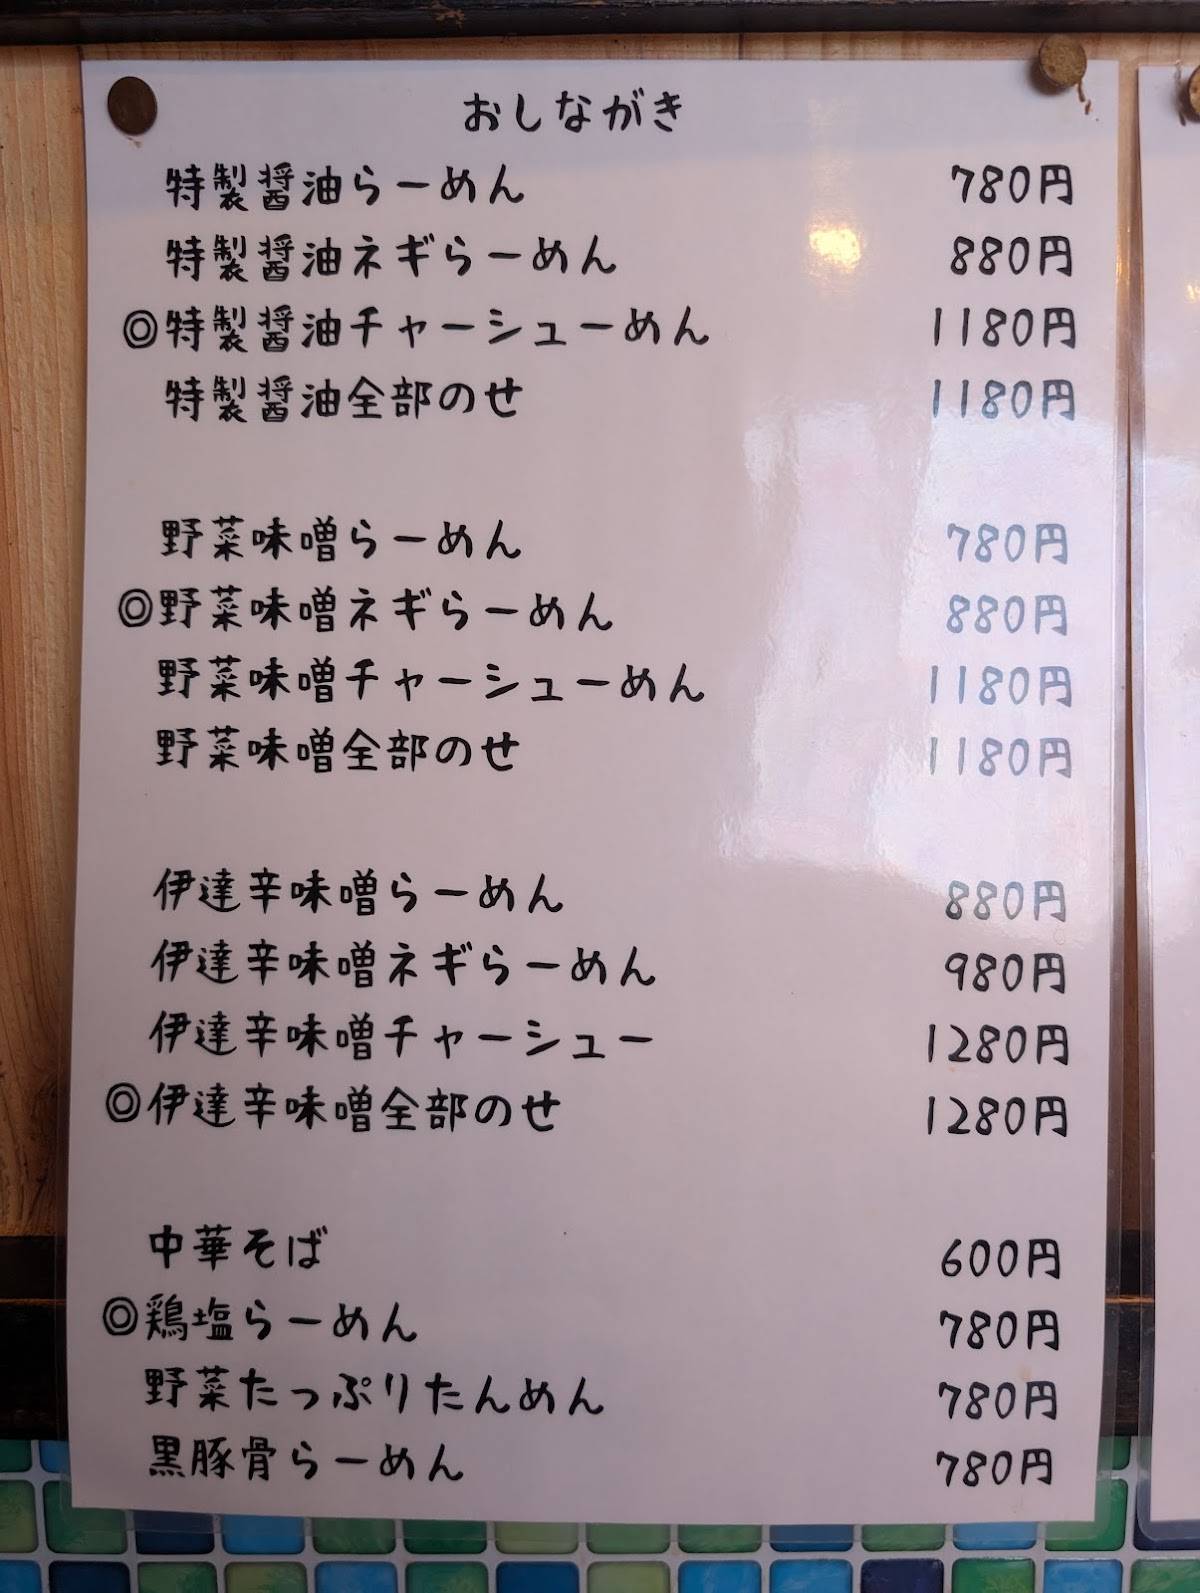 おしながき
特製醤油らーめん 780円
特製醤油ネギらーめん 880円
◎特製醤油チャーシューめん 1180円
特製醤油全部のせ 1180円
野菜味噌らーめん 780円
◎野菜味噌ネギらーめん 880円
野菜味噌チャーシューめん 1180円
野菜味噌全部のせ 1180円
伊達辛味噌らーめん 880円
伊達辛味噌ネギらーめん 980円
伊達辛味噌チャーシュー 1280円
◎伊達辛味噌全部のせ 1280円
中華そば 600円
◎鶏塩らーめん 780円
野菜たっぷりたんめん 780円
黒豚骨らーめん 780円